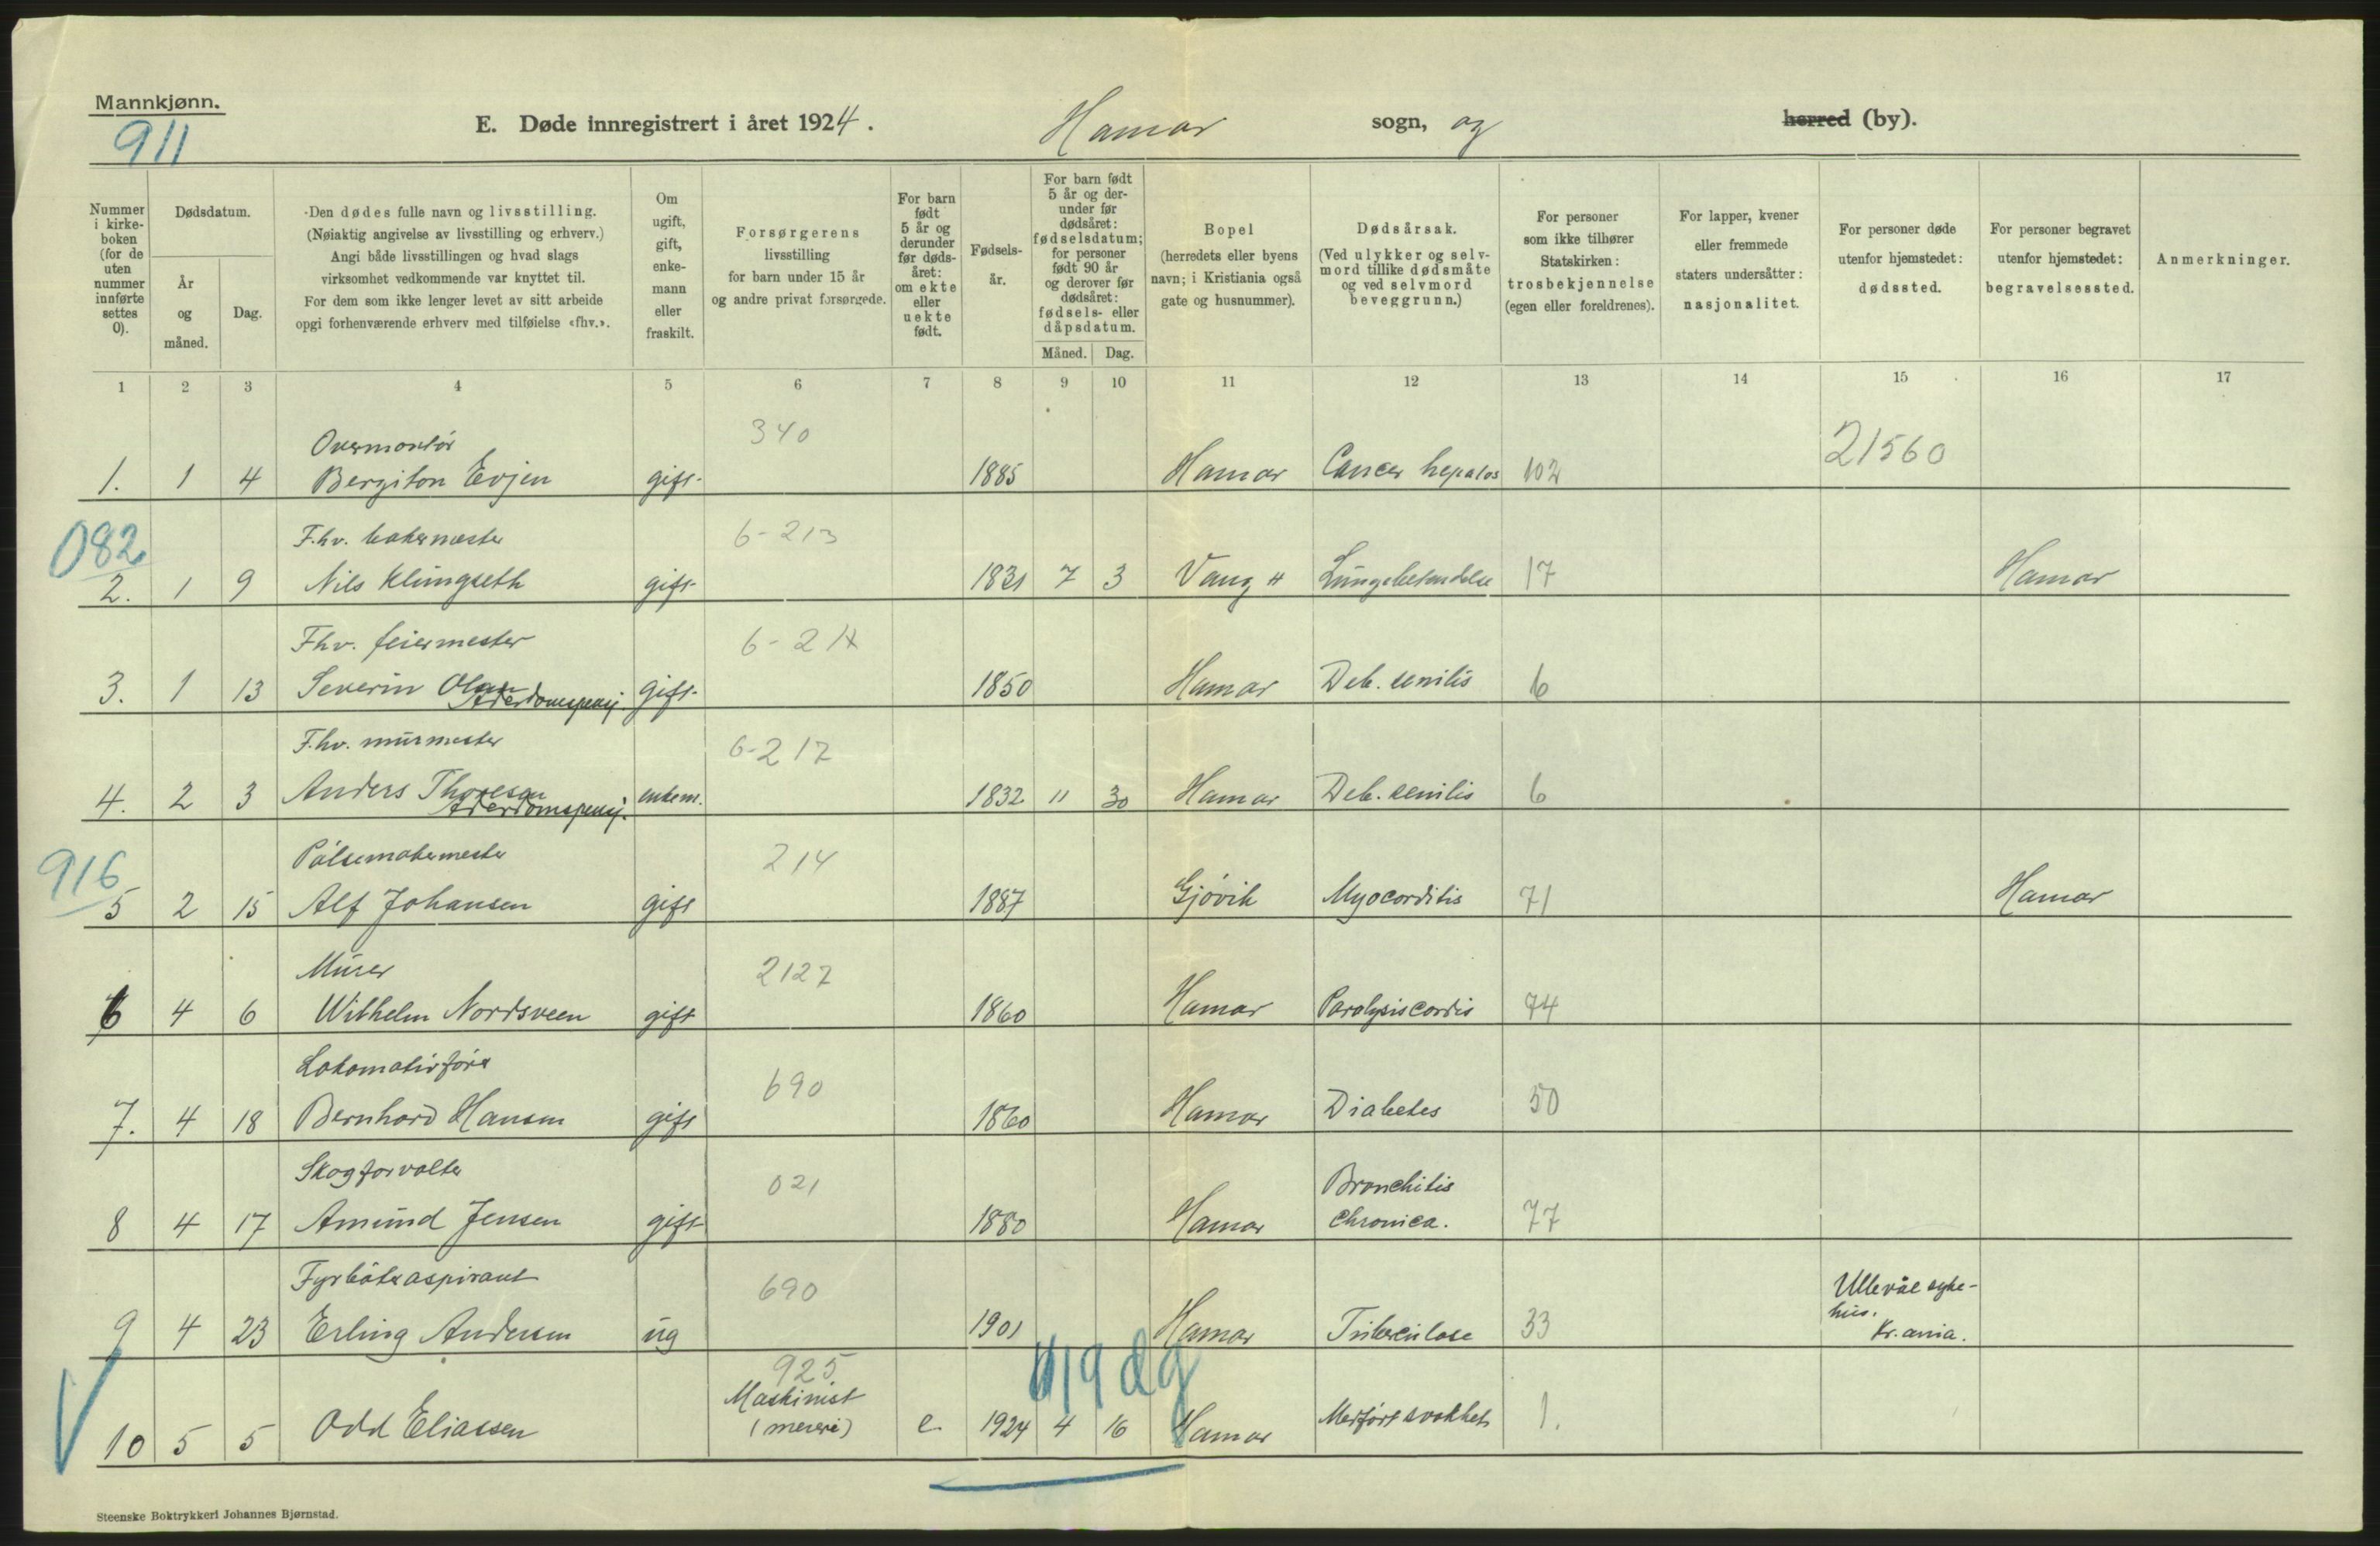 Mannkjønn.
911
E. Døde innregistrert i året 1924. Hamar sogn, og herred (by).
Nummer i kirke-boken (for de uten nummer innførte settes 0).
Dødsdatum.
År og måned.
Dag.
Den dødes fulle navn og livsstilling.
(Nøiaktig angivelse av livsstilling og erhverv.)
Angi både livsstillingen og hvad slags
virksomhet vedkommende var knyttet til.
For dem som ikke lenger levet av sitt arbeide
opgi forhenværende erhverv med tilføielse «fhv.».
Om ugift, gift, enke-mann eller fraskilt.
Forsørgerens
livsstilling
for barn under 15 år
og andre privat forsørgede.
For barn født 5 år og derunder før døds-året: om ekte eller uekte født.
Fødsels-år.
For barn født 5 år og der-under før dødsåret: fødselsdatum; for personer født 90 år og derover før dødsåret: fødsels- eller dåpsdatum.
Måned. Dag.
Bopel
(herredets eller byens
navn; i Kristiania også
gate og husnummer).
Dødsårsak.
(Ved ulykker og selv-
mord tillike dødsmåte
og ved selvmord
beveggrunn.)
For personer
som ikke tilhører
Statskirken:
trosbekjennelse
(egen eller foreldrenes).
For lapper, kvener
eller fremmede
staters undersåtter:
nasjonalitet.
For personer døde
utenfor hjemstedet:
dødssted.
For personer begravet
utenfor hjemstedet:
begravelsessted.
Anmerkninger.
1 2 3 4 5 6 7 8 9 10 11 12 13 14 15 16 17
Overmontør 340 21560
1. 1 4 Bergiton Evjen gift 1885 Hamar Cancer hepatos 102
082 F.hv. bakermester 6-213
2. 1 9 Nils Klungseth gift 1831 7 3 Vang H Lungebetendelse 17 Hamar
Fhv. feiermester 6-2
3. 1 13 Severin Olsen gift 1850 Hamar Deb. senilis 6
Alderdomspensj.
F.hv. murmester 6-217
4. 2 3 Anders Thoresen enkem. 1832 11 30 Hamar Deb. senilis 6
Alderdomspensj.
916 Pølsemakermester 214
5 2 15 Alf Johansen gift 1887 Gjøvik Myocarditis 71 Hamar
Murer 2127
6 4 6 Wilhelm Nordsveen gift 1860 Hamar Paralysis cordis 74
Lokomotivfører 690
7. 4 18 Bernhard Hansen gift 1860 Hamar Diabetes 50
Skogforvalter 021 Bronchitis
8 4 17 Amund Jensen gift 1880 Hamar Chronica. 77
Fyrbøteraspirant 690 Ullevål syke-
hus.
9 4 23 Erling Andersen ug 1901 Hamar Tuberculose 33 Kr.ania.
925 19 dg
Maskinist
10 5 5 Odd Eliassen (meieri) e. 1924 4 16 Hamar Medført svakhet 1.
Steenske Boktrykkeri Johannes Bjørnstad.